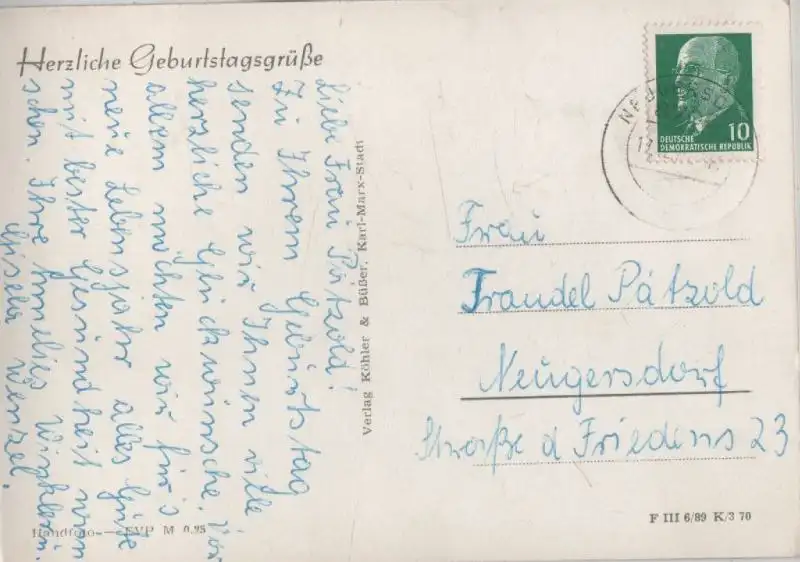 Herzliche Geburtstagsgrüße
Liebe Frau Pätzold!
Zu Ihrem Geburtstag
senden wir Ihnen viele
herzliche Glückwünsche. Vor
allem möchten wir für's
neue Lebensjahr alles Gute
mit bester Gesundheit wün
schen. Ihre Annelies Winkler u.
Gisela Wenzel.
Handfoto — EVP M 0.25
Verlag Köhler & Büßer, Karl-Marx-Stadt
DEUTSCHE
DEMOKRATISCHE REPUBLIK
10
Frau
Traudel Pätzold
Neugersdorf
Straße d Friedens 23
F III 6/89 K/3 70